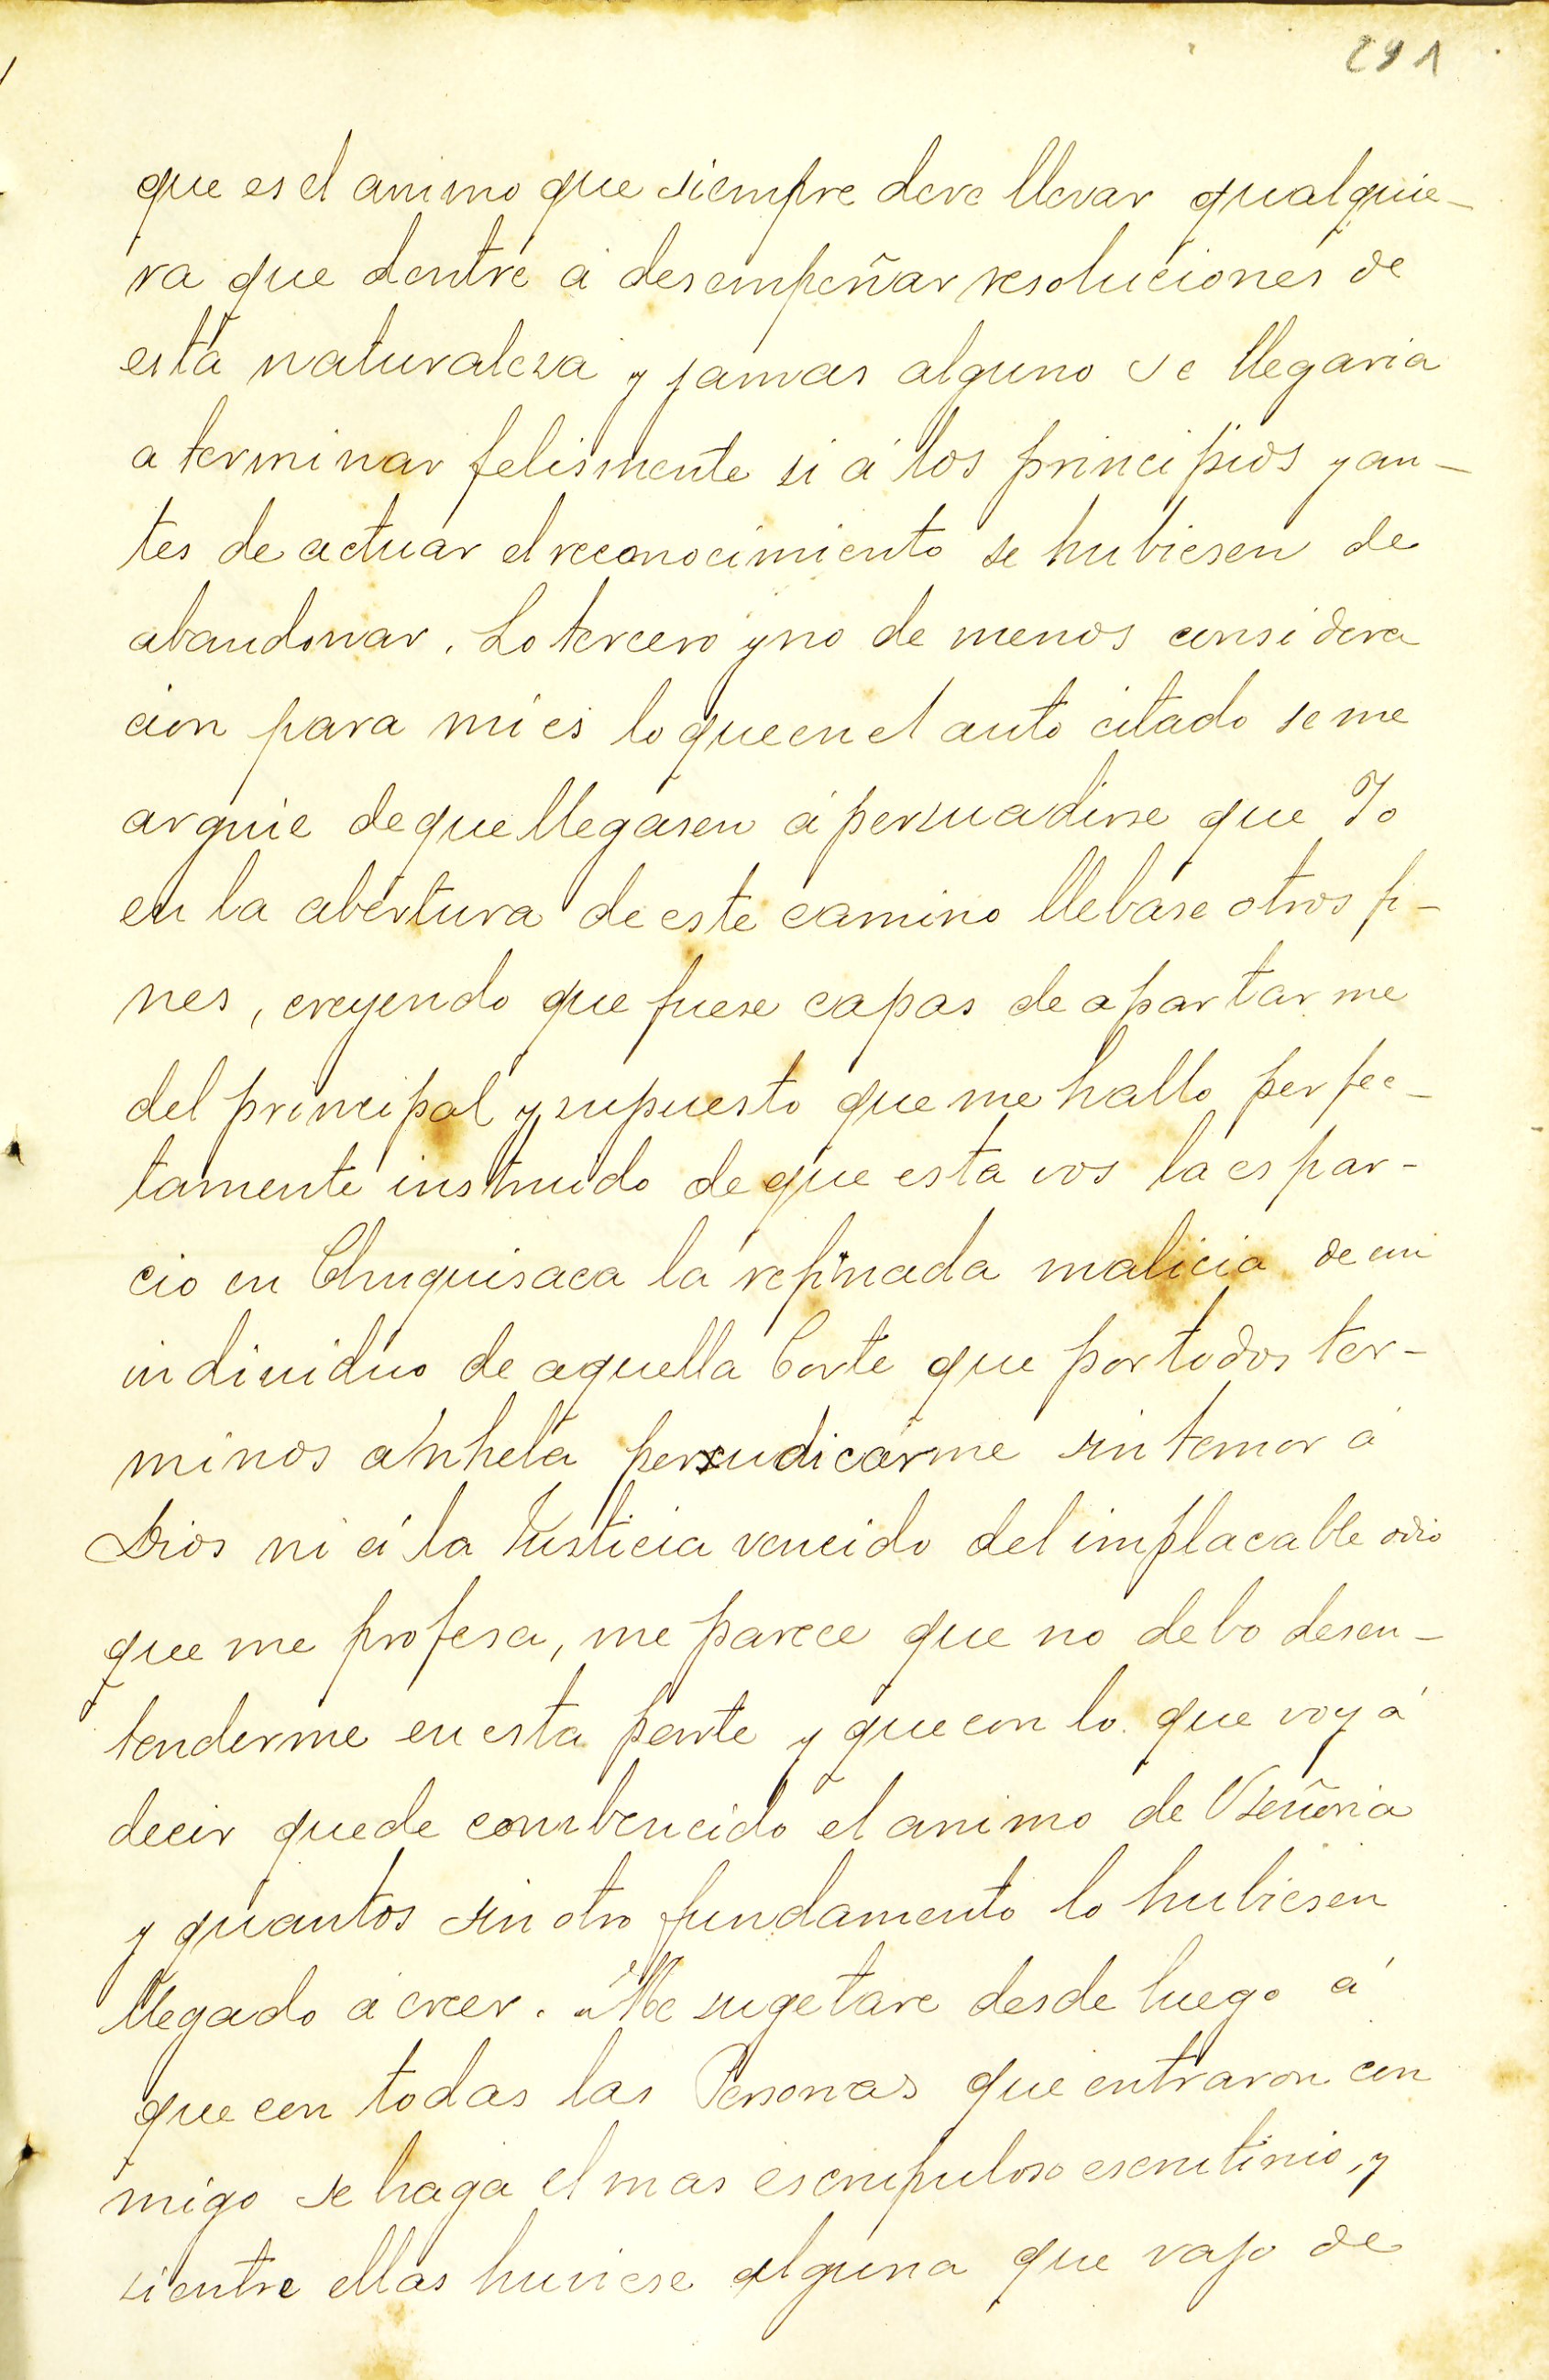 291
que es el animo que siempre deve llevar qualquie-
ra que dentre á desempeñar resoluciones de
esta naturalesa y jamas alguno se llegaria
a terminar felismente si á los principios y an-
tes de actuar el reconocimiento se hubiesen de
abandonar. Lo tercero y no de menos considera
cion para mi es lo que en el auto citado se me
arguie de que llegasen á persuadirse que Yo
en la abertura de este camino llebase otros fi-
nes, creyendo que fuese capas de apartarme
del principal y supuesto que me hallo perfec-
tamente instruido de que esta vos la espar-
cio en Chuquisaca la refinada malicia de un
individuo de aquella Corte que por todos ter-
minos anhela perxudicarme sin temor á
Dios ni á la Justicia vencido del implacable odio
que me profesa, me parece que no debo desen-
tenderme en esta parte y que con lo que voy á
decir quede combencido el animo de Vseñoria
y quantos sin otro fundamento lo hubiesen
llegado á creer. Me sugetare desde luego á
que con todas las Personas que entraron con
migo se haga el mas escrupuloso escrutinio, y
si entre ellas huviese alguna que vajo de